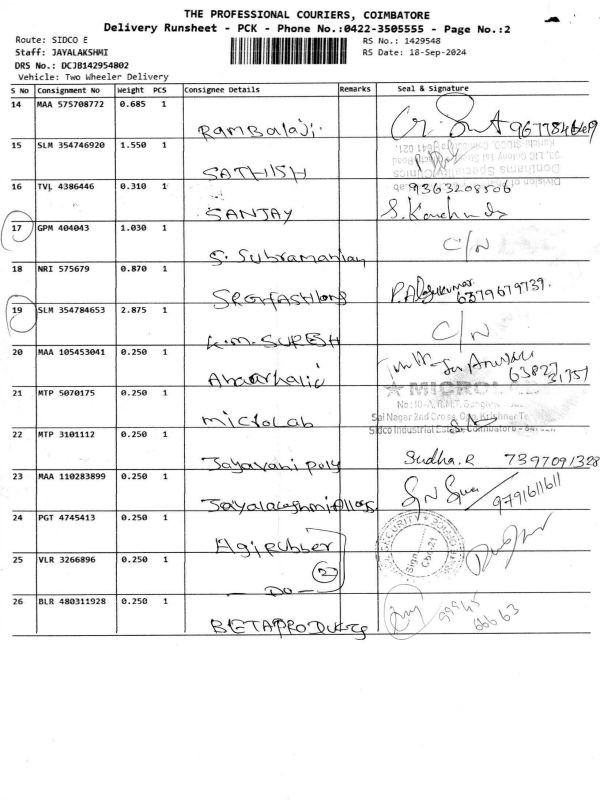 THE PROFESSIONAL COURIERS, COIMBATORE
Delivery Runsheet - PCK - Phone No.:0422-3505555 - Page No.:2
Route: SIDCO E
RS No.: 1429548
Staff: JAYALAKSHMI
RS Date: 18-Sep-2024
DRS No.: DCJB142954802
Vehicle: Two Wheeler Delivery
S No Consignment No Weight PCS Consignee Details Remarks Seal & Signature
14 MAA 575708772 0.685 1
Rambalaji
15 SLM 354746920 1.550 1
SATHISH
16 TVL 4386446 0.310 1 9363208506
SANJAY
17 GPM 404043 1.030 1 C/N
S. Subramanian
18 NRI 575679 0.870 1
6379679739.
19 SLM 354784653 2.875 1 C/N
K.M. SURESH
20 MAA 105453041 0.250 1
63827
31751
21 MTP 5070175 0.250 1
MICRO
microLab
Sidco Industrial
22 MTP 3101112 0.250 1
Sudha.R 7397091328
23 MAA 110283899 0.250 1
9791611611
24 PGT 4745413 0.250 1
SECURITY
Agirubber
25 VLR 3266896 0.250 1
2
- DO -
26 BLR 480311928 0.250 1
99945
66663
BETAPRODUKTS